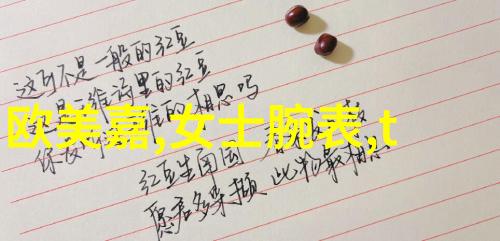 这可不是一般的红豆
维诗里的红豆
的相思吗
欧美嘉,女士腕表,t
红豆生南国
愿君多采撷 此物最相思